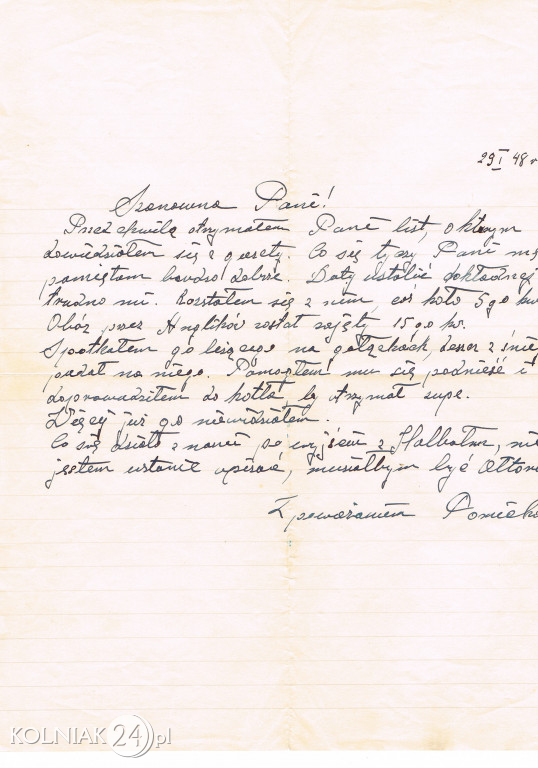 29 I 48 r
Szanowna Pani!
Przed chwilą otrzymałem Pani list, o którym
dowiedziałem się z gazety. Co się tyczy Pani mę
pamiętam bardzo dobrze. Daty ustalić dokładniej
trudno mi. Rozstałem się z nim coś koło 5go kw
Obóz przez Anglików został zajęty 15go kw.
Spotkałem go leżącego na gałązkach, deszcz z śnie
padał na niego. Pomogłem mu się podnieść i
doprowadziłem do kotła, by otrzymał supe.
Więcej już go niewidziałem.
Co się działo z nami po wyjściu z nie
jestem wstanie opisać, musiałbym być
Z poważaniem
KOLNIAK24.pl